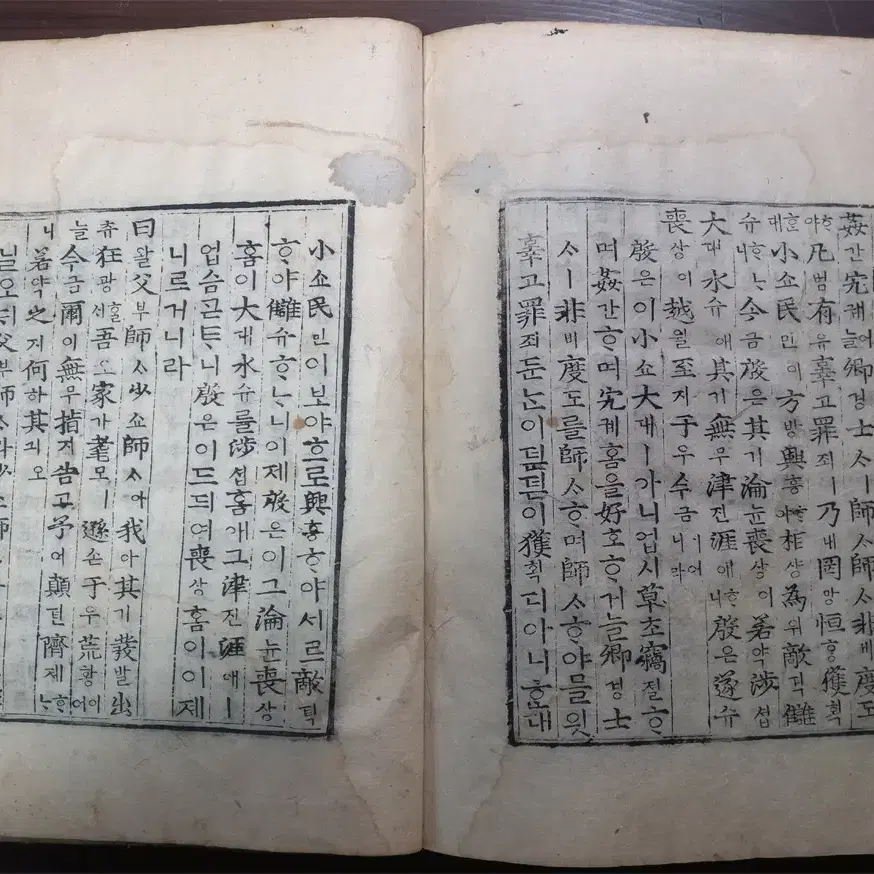 姦간宄궤늘어卿경士ᄉᆞㅣ師ᄉᆞ師ᄉᆞ非비度도
ᄒᆞ야凡범有유辜고罪죄ㅣ乃내罔망恒ᄒᆞᆼ獲획
ᄒᆞᆫ대小쇼民민이方방興흥ᄒᆞ야相샹為위敵뎍讎
슈ᄒᆞᄂᆞ니今금殷은其기淪륜喪상이若약涉셥
大대水슈애其기無무津진涯애ᄒᆞ니殷은遂슈
喪상이越월至지于우今금이어니라
殷은이小쇼大대ㅣ가니업시草초竊졀ᄒᆞ
며姦간ᄒᆞ며宄궤홈을好호ᄒᆞ거늘卿경士
ᄉᆞㅣ非비度도를師ᄉᆞᄒᆞ며師ᄉᆞᄒᆞ야믈읫
辜고罪죄둔ᄂᆞᆫ이덛덛이獲획디아니ᄒᆞᆫ대
小쇼民민이보야ᄒᆞ로興흥ᄒᆞ야서르敵뎍
ᄒᆞ야讎슈ᄒᆞᄂᆞ니이제殷은이그淪륜喪상
홈이大대水슈를涉셥홈애그津진涯애ㅣ
업슴ᄀᆞᆮᄐᆞ니殷은이드듸여喪상홈이이제
니르거니라
曰왈父부師ᄉᆞ少쇼師ᄉᆞ아我아其기發발出
츌狂광ᄒᆞᆯ셰吾오家가耄모ㅣ遜손于우荒황이어
늘今금爾이無무指지告고予여顚뎐隮졔ᄒᆞᄂᆞ
니若약之지何하其긔오
닐오ᄃᆡ父부師ᄉᆞ아少쇼師